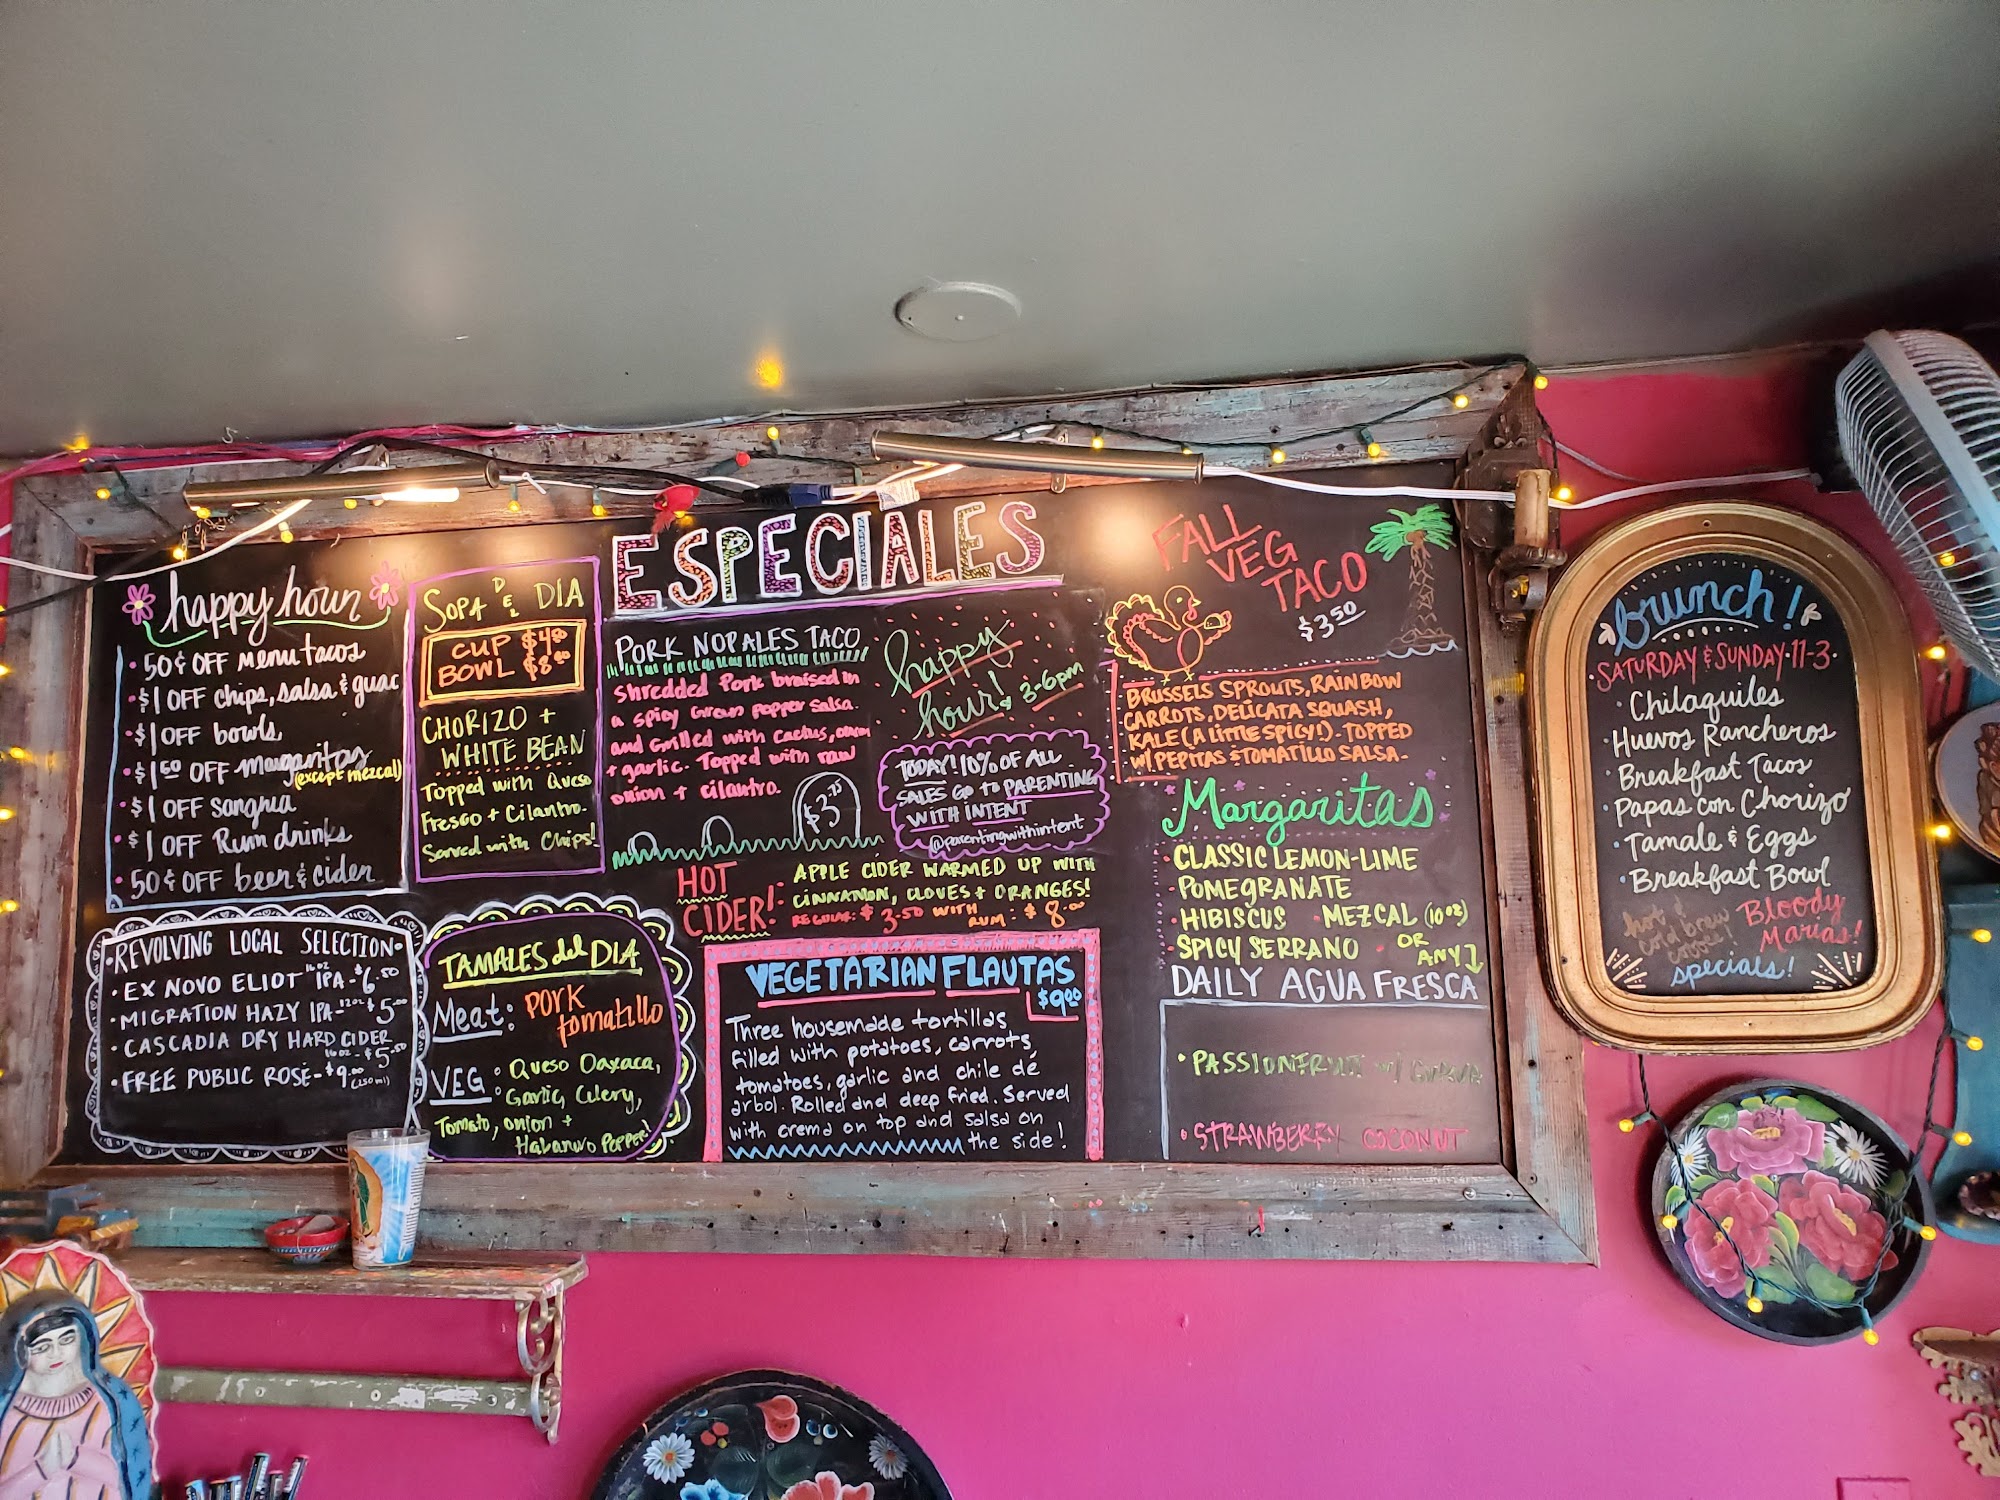 happy hour
• 50¢ OFF menu tacos
• $1 OFF chips, salsa & guac
• $1 OFF bowls
• $1.50 OFF margaritas
(except mezcal)
• $1 OFF sangria
• $1 OFF Rum drinks
• 50¢ OFF beer & cider
• REVOLVING LOCAL SELECTION •
• EX NOVO ELIOT 16oz IPA - $6.50
• MIGRATION HAZY IPA - 12oz $5.00
• CASCADIA DRY HARD CIDER
16oz - $5.50
• FREE PUBLIC ROSÉ - $9.00 (250ml)
SOPA DEL DIA
CUP $4.00
BOWL $8.00
CHORIZO +
WHITE BEAN
Topped with Queso
Fresco + Cilantro.
Served with Chips!
TAMALES del DIA
Meat: PORK
tomatillo
VEG: Queso Oaxaca,
Garlic, Celery,
Tomato, onion +
Habanero Pepper!
ESPECIALES
PORK NOPALES TACO
Shredded Pork braised in
a spicy Green Pepper Salsa.
and Grilled with cactus, onion
+ garlic. Topped with raw
onion + cilantro.
$3.75
happy
hour! 3-6pm
TODAY! 10% OF ALL
SALES GO to PARENTING
WITH INTENT
@parentingwithintent
HOT
CIDER!:
APPLE CIDER WARMED UP WITH
CINNAMON, CLOVES + ORANGES!
REGULAR: $3.50 WITH RUM: $8.00
VEGETARIAN FLAUTAS
$9.00
Three housemade tortillas
filled with potatoes, carrots
tomatoes, garlic and chile dé
arbol. Rolled and deep fried. Served
with crema on top and salsa on
the side!
FALL
VEG
TACO
$3.50
BRUSSELS SPROUTS, RAINBOW
CARROTS, DELICATA SQUASH,
KALE (A LITTLE SPICY!). TOPPED
W/ PEPITAS & TOMATILLO SALSA.
Margaritas
• CLASSIC LEMON-LIME
• POMEGRANATE
• HIBISCUS • MEZCAL (10oz)
• SPICY SERRANO • OR ANY
DAILY AGUA FRESCA
• PASSIONFRUIT w/ GUAVA
• STRAWBERRY COCONUT
brunch!
• SATURDAY & SUNDAY • 11-3 •
• Chilaquiles
• Huevos Rancheros
• Breakfast Tacos
• Papas con Chorizo
• Tamale & Eggs
• Breakfast Bowl
hot &
cold brew
Bloody
Marias!
specials!